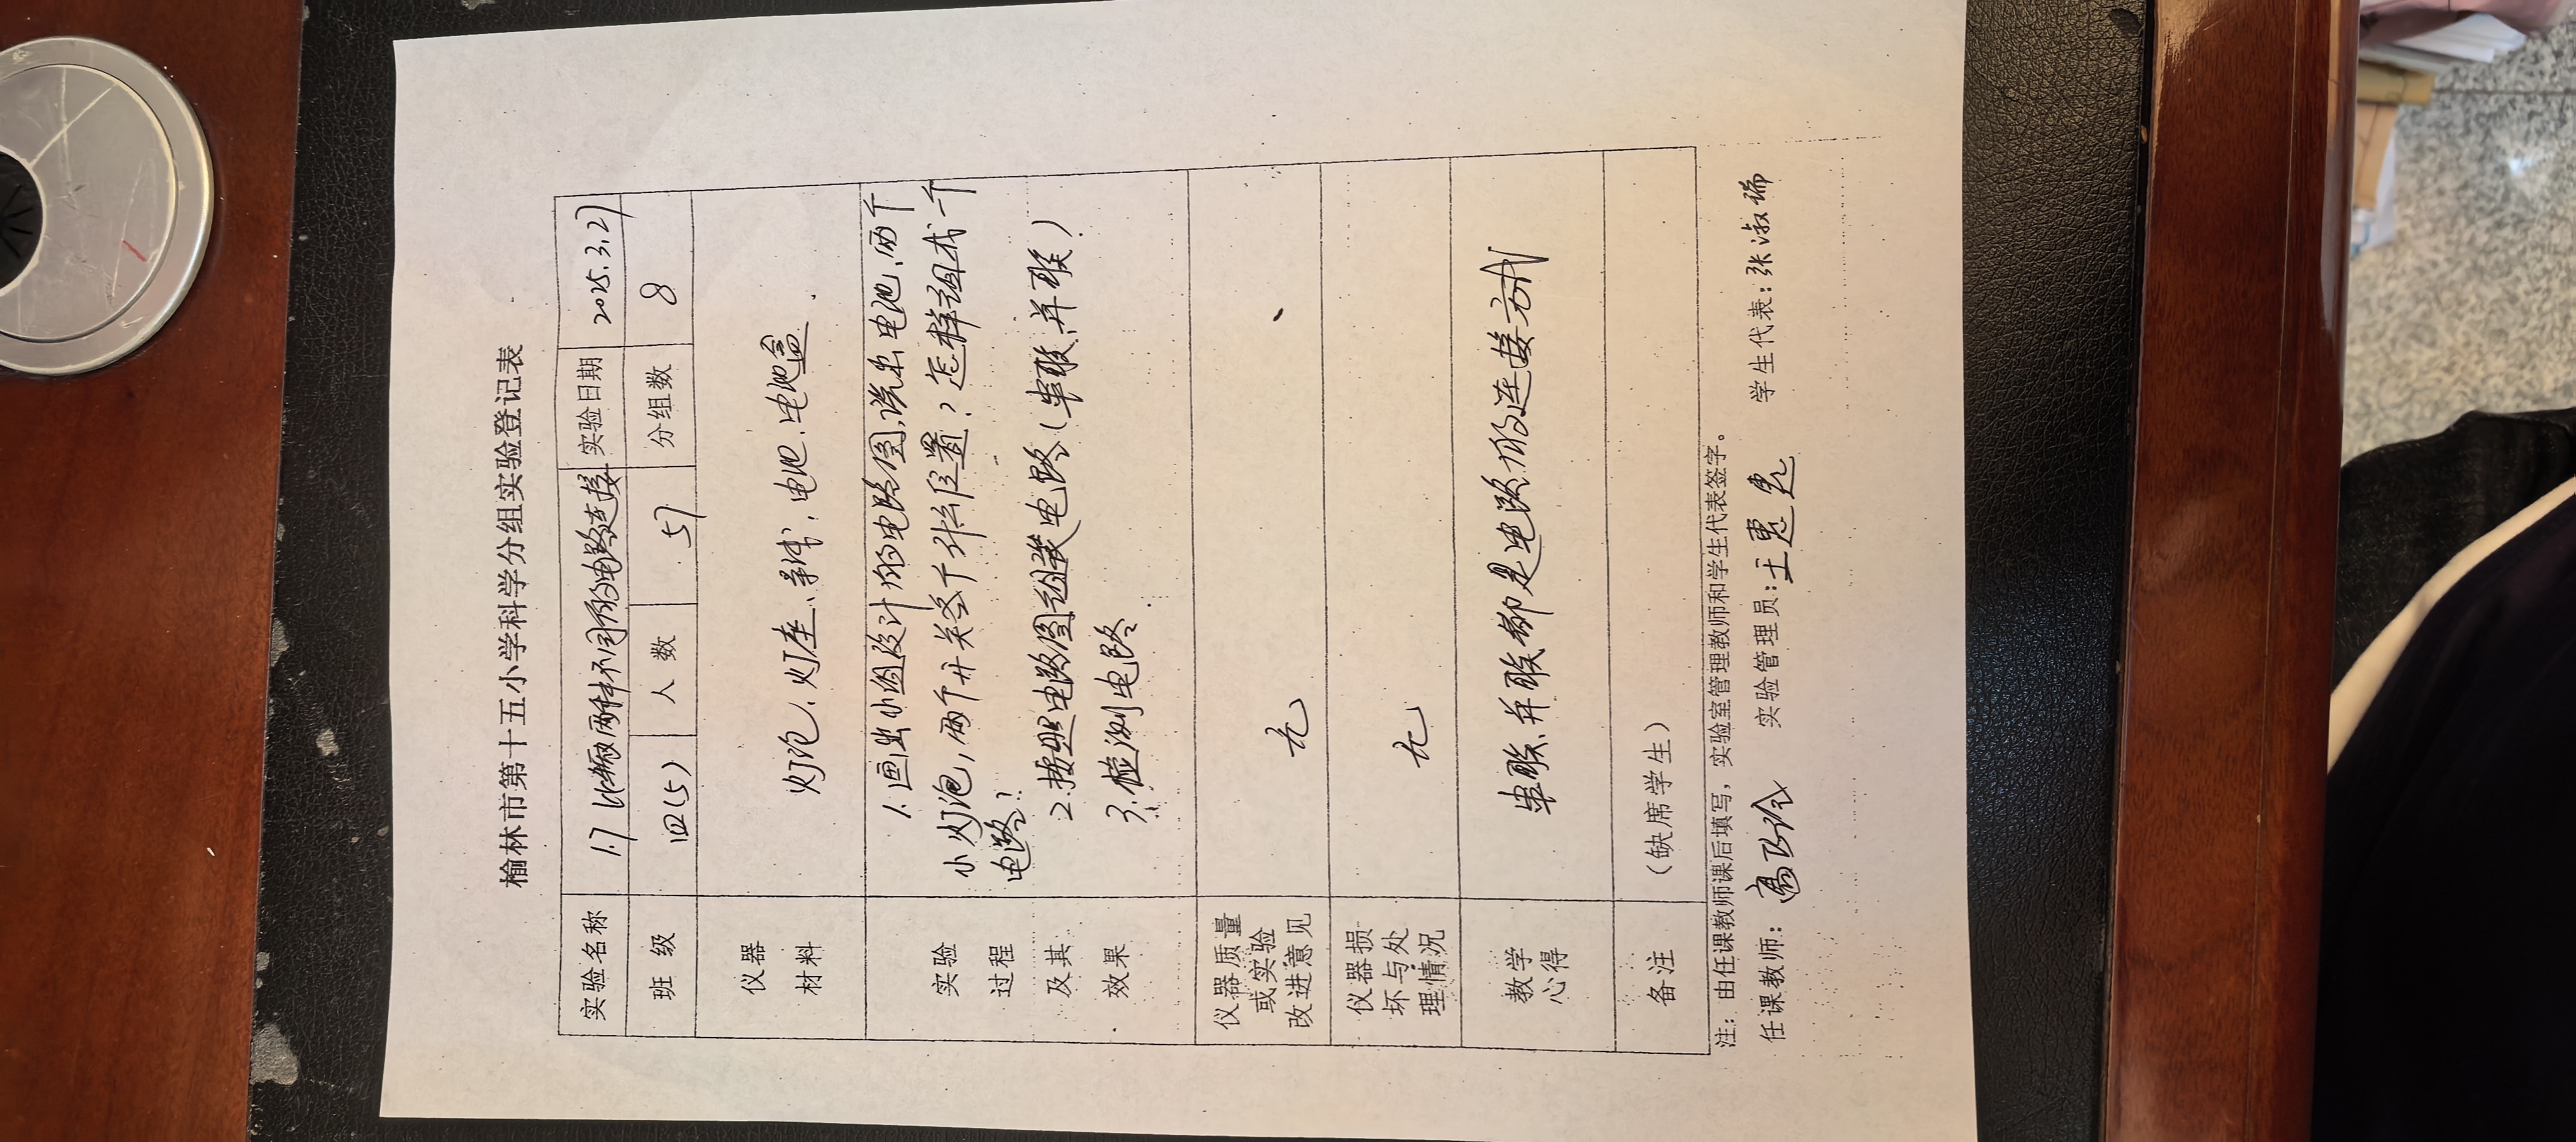 榆林市第十五小学科学分组实验登记表
实验名称 1.7 比较两种不同的电路连接 实验日期 2025.3.27
班 级 四(5) 人 数 57 分组数 8
仪器 材料 灯泡、灯座、导线、电池、电池盒
实验 过程 及其 效果
1.画出小组设计的电路图,说出电池、两个
小灯泡,两个开关各个升给位置?怎样组成一个
电路?
2.按照电路图组装电路(串联、并联)
3.检测电路
仪器质量 或实验 改进意见 无
仪器损 坏与处 理情况 无
教学 心得 串联、并联都是电路的连接方式
备注 (缺席学生)
注:由任课教师课后填写,实验室管理教师和学生代表签字。
任课教师: 高 实验管理员:王惠 学生代表:张淑瑞